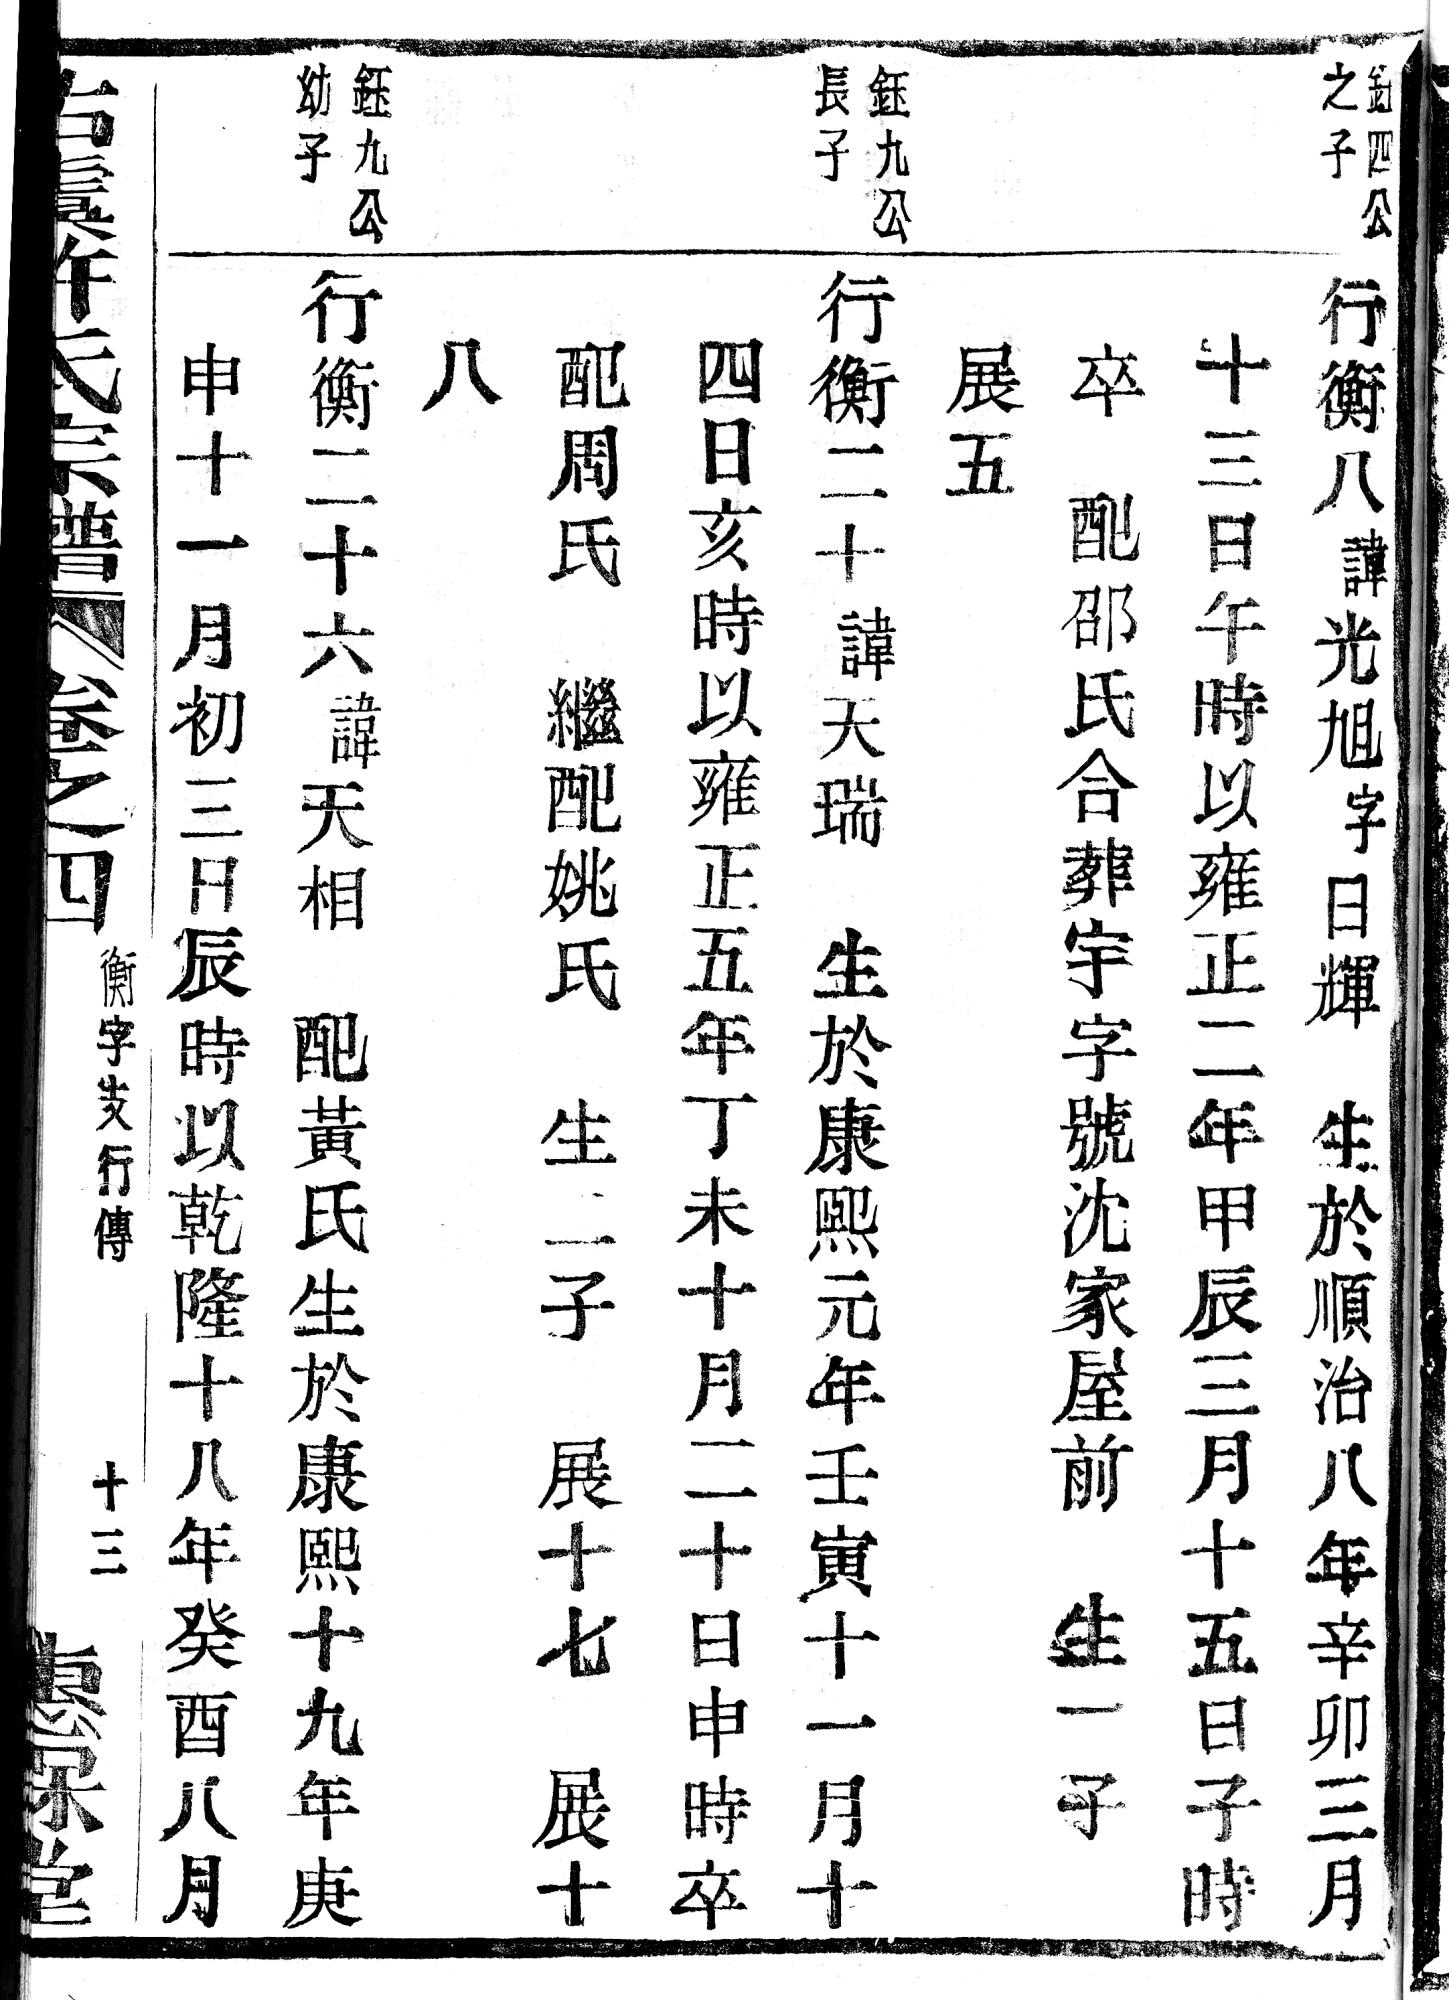 鈺四公
之子
行衡八諱光旭字日輝　生於順治八年辛卯三月
十三日午時以雍正二年甲辰三月十五日子時
卒　配邵氏合葬宇字號沈家屋前　生一子
展五
鈺九公
長子
行衡二十諱天瑞　生於康熙元年壬寅十一月十
四日亥時以雍正五年丁未十月二十日申時卒
配周氏　繼配姚氏　生二子　展十七　展十
八
鈺九公
幼子
行衡二十六諱天相　配黃氏生於康熙十九年庚
申十一月初三日辰時以乾隆十八年癸酉八月
古虞許氏宗譜　卷之四　衡字支行傳　十三　惠保堂